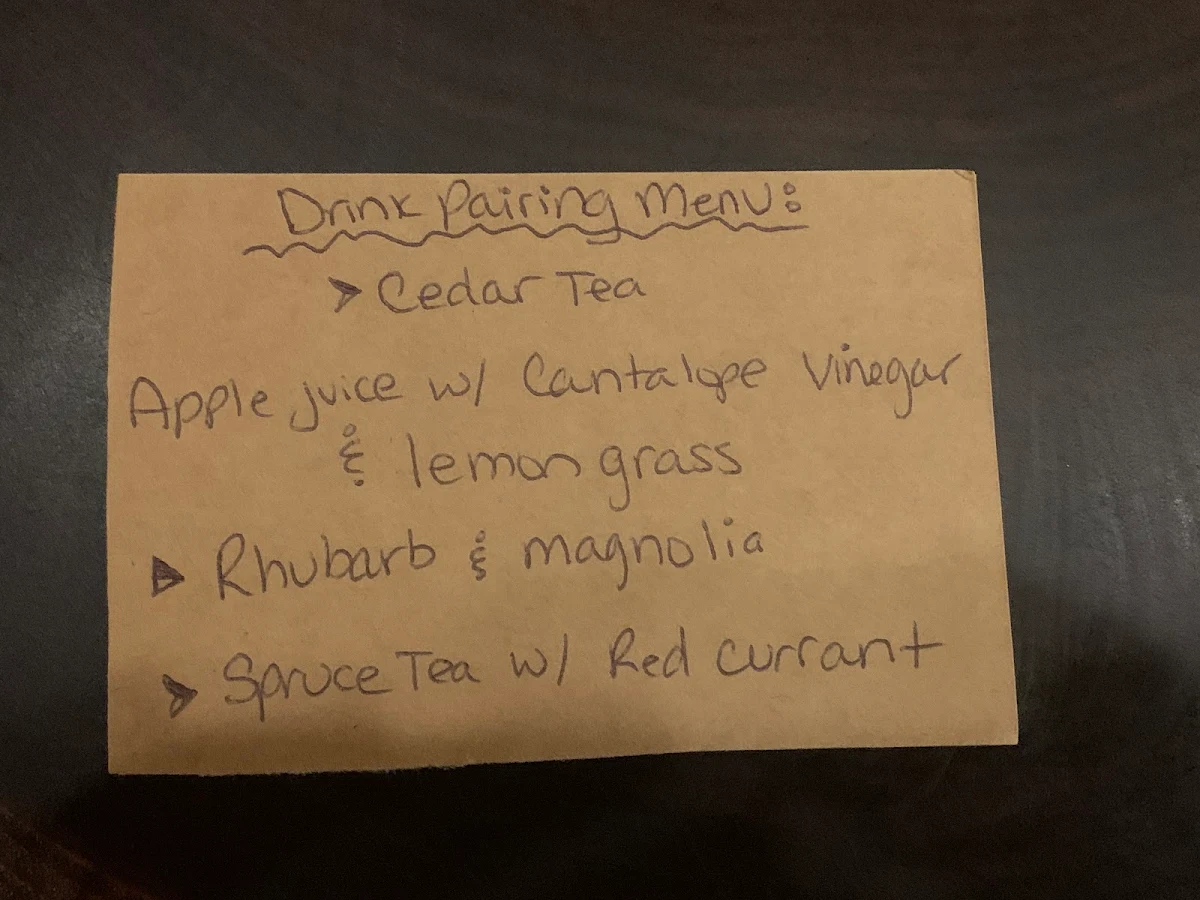 Drink Pairing Menu:
➤ Cedar Tea
Apple juice w/ Cantalope Vinegar
& lemon grass
➤ Rhubarb & magnolia
➤ Spruce Tea w/ Red currant